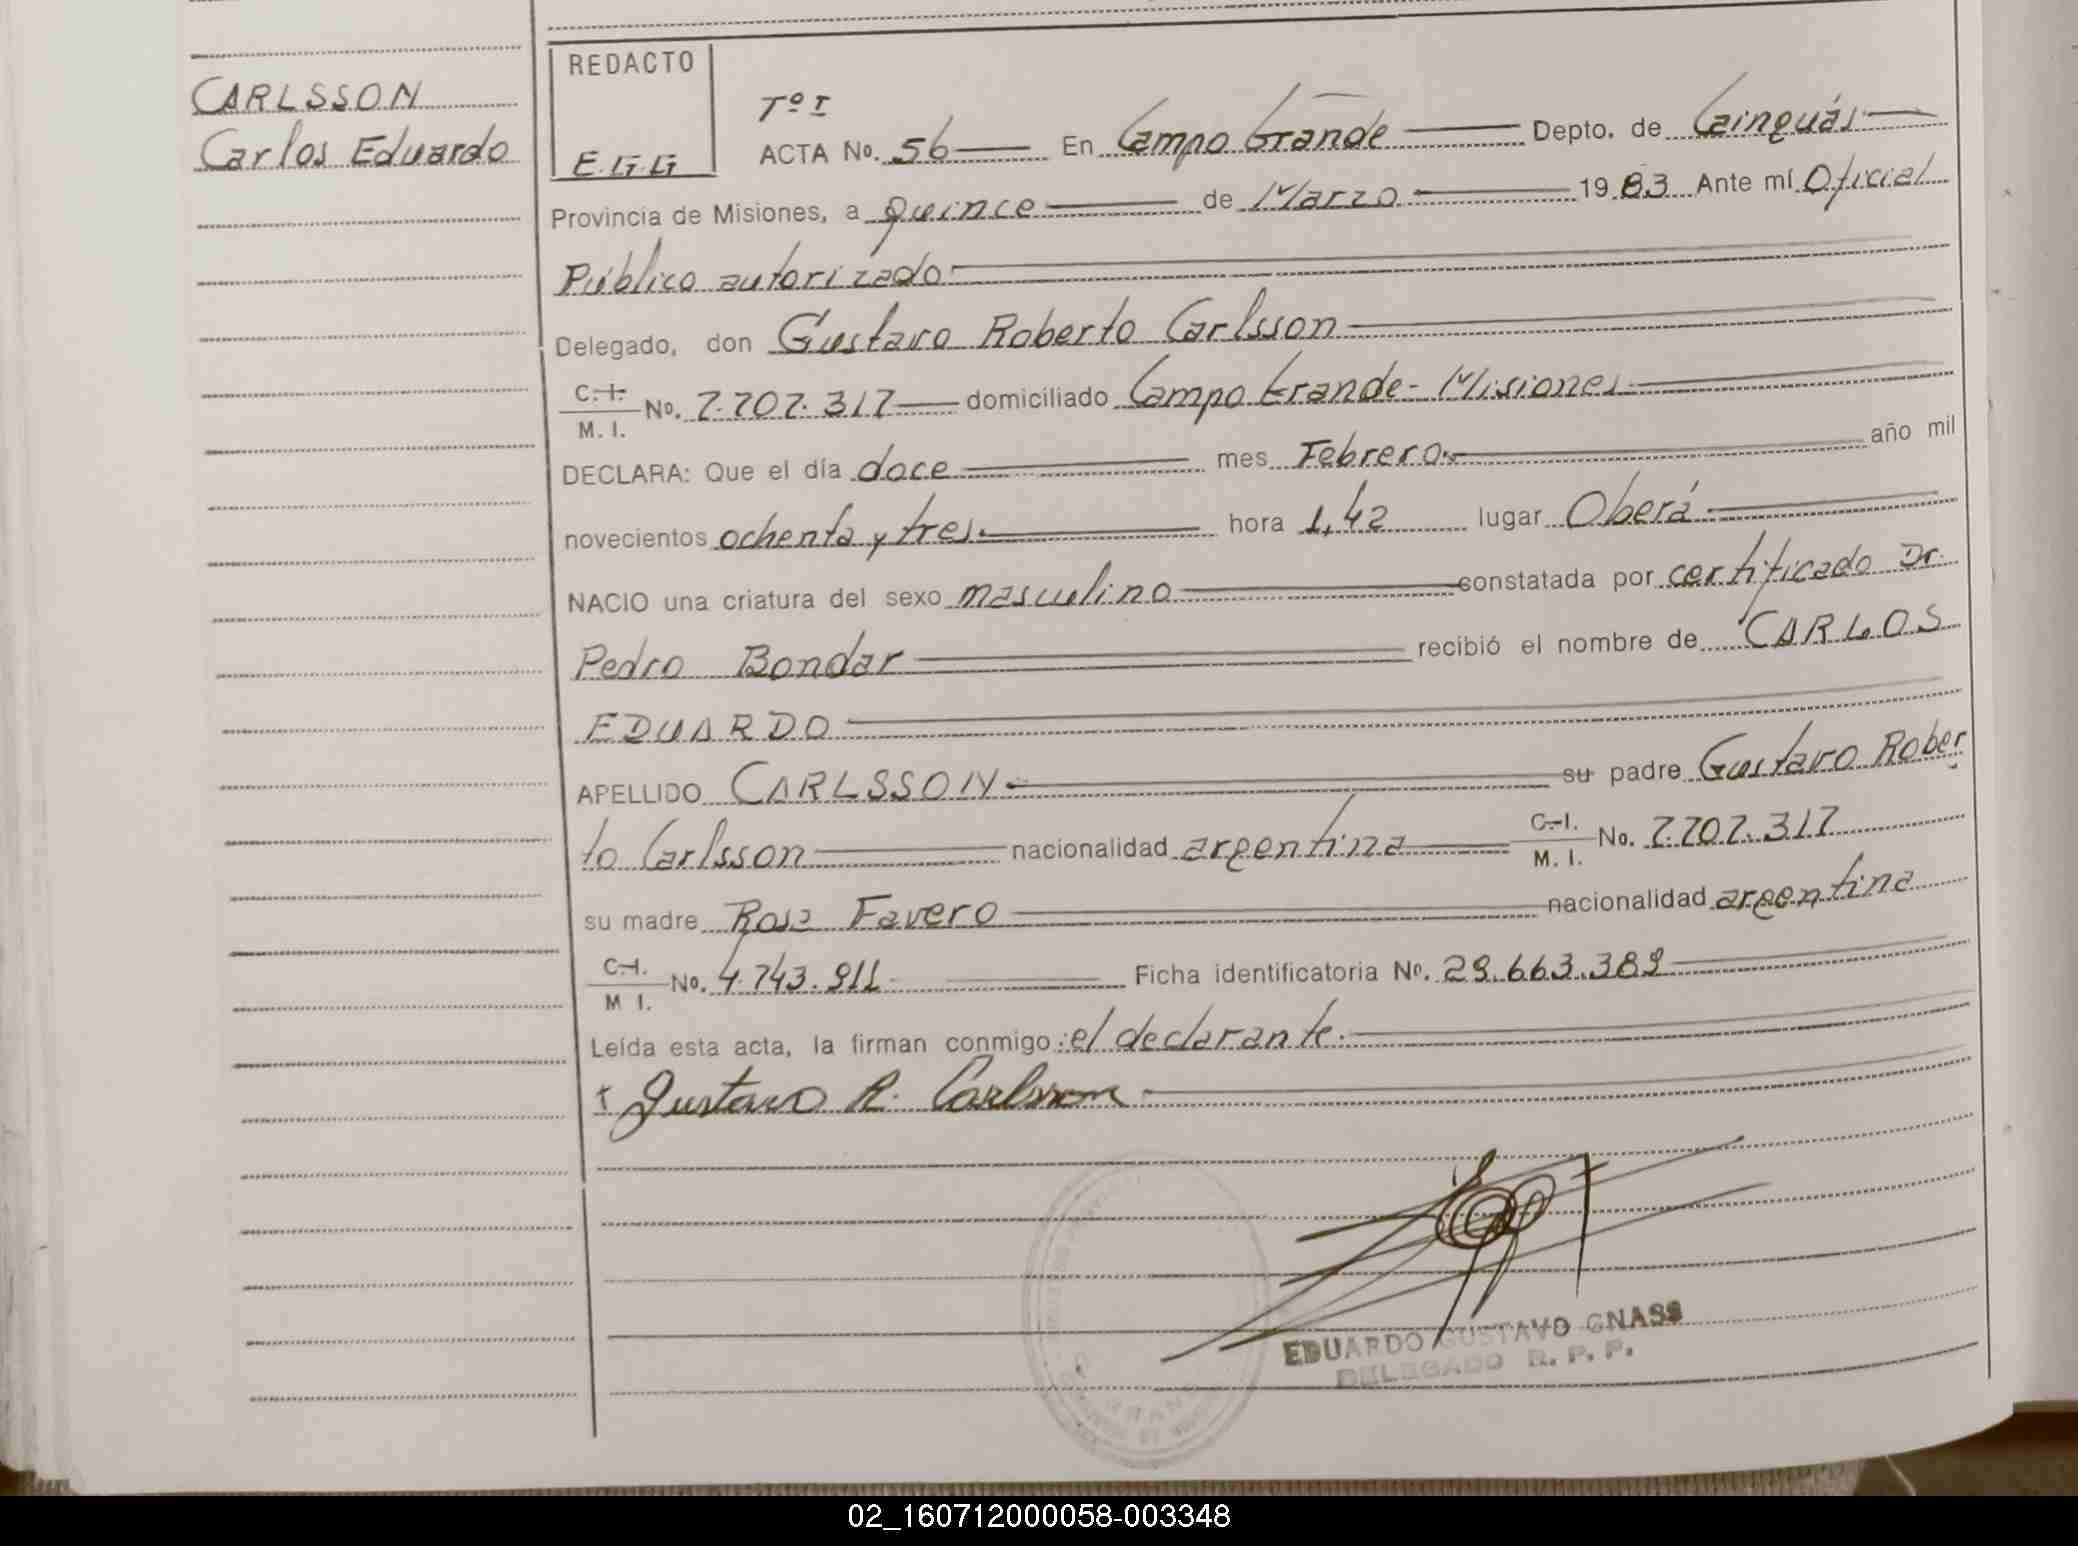 CARLSSON
Carlos Eduardo
REDACTO
E.G.G
Tº I
ACTA Nº. 56 En Campo Grande Depto. de Cainguás
Provincia de Misiones, a quince de Marzo 1983 Ante mí Oficial
Público autorizado
Delegado, don Gustavo Roberto Carlsson
C. I.
M. I. Nº. 7.707.317 domiciliado Campo Grande - Misiones
DECLARA: Que el día doce mes Febrero año mil
novecientos ochenta y tres. hora 1,42 lugar Oberá
NACIO una criatura del sexo masculino constatada por certificado Dr.
Pedro Bondar recibió el nombre de CARLOS
EDUARDO
APELLIDO CARLSSON su padre Gustavo Rober
to Carlsson nacionalidad argentina C. I.
M. I. Nº. 7.707.317
su madre Rosa Favero nacionalidad argentina
C. I.
M I. Nº. 4.743.911 Ficha identificatoria Nº. 29.663.389
Leída esta acta, la firman conmigo: el declarante.
Gustavo R. Carlsson
EDUARDO GUSTAVO GNASS
DELEGADO R. P. P.
02_160712000058-003348